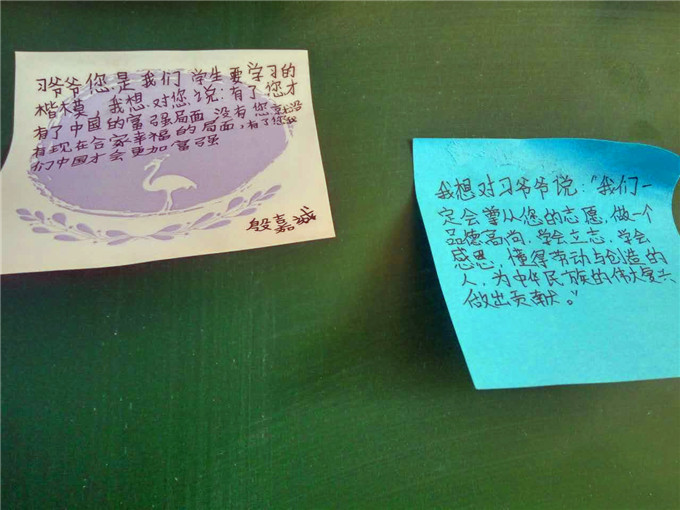 习爷爷您是我们学生要学习的
楷模，我想对您说：有了您才
有了中国的富强局面，没有您就没
有现在合家幸福的局面，有了您我
们中国才会更加富强
殷嘉诚
我想对习爷爷说：“我们一
定会遵从您的志愿，做一个
品德高尚，学会立志，学会
感恩，懂得劳动与创造的
人，为中华民族的伟大复兴
做出贡献。”